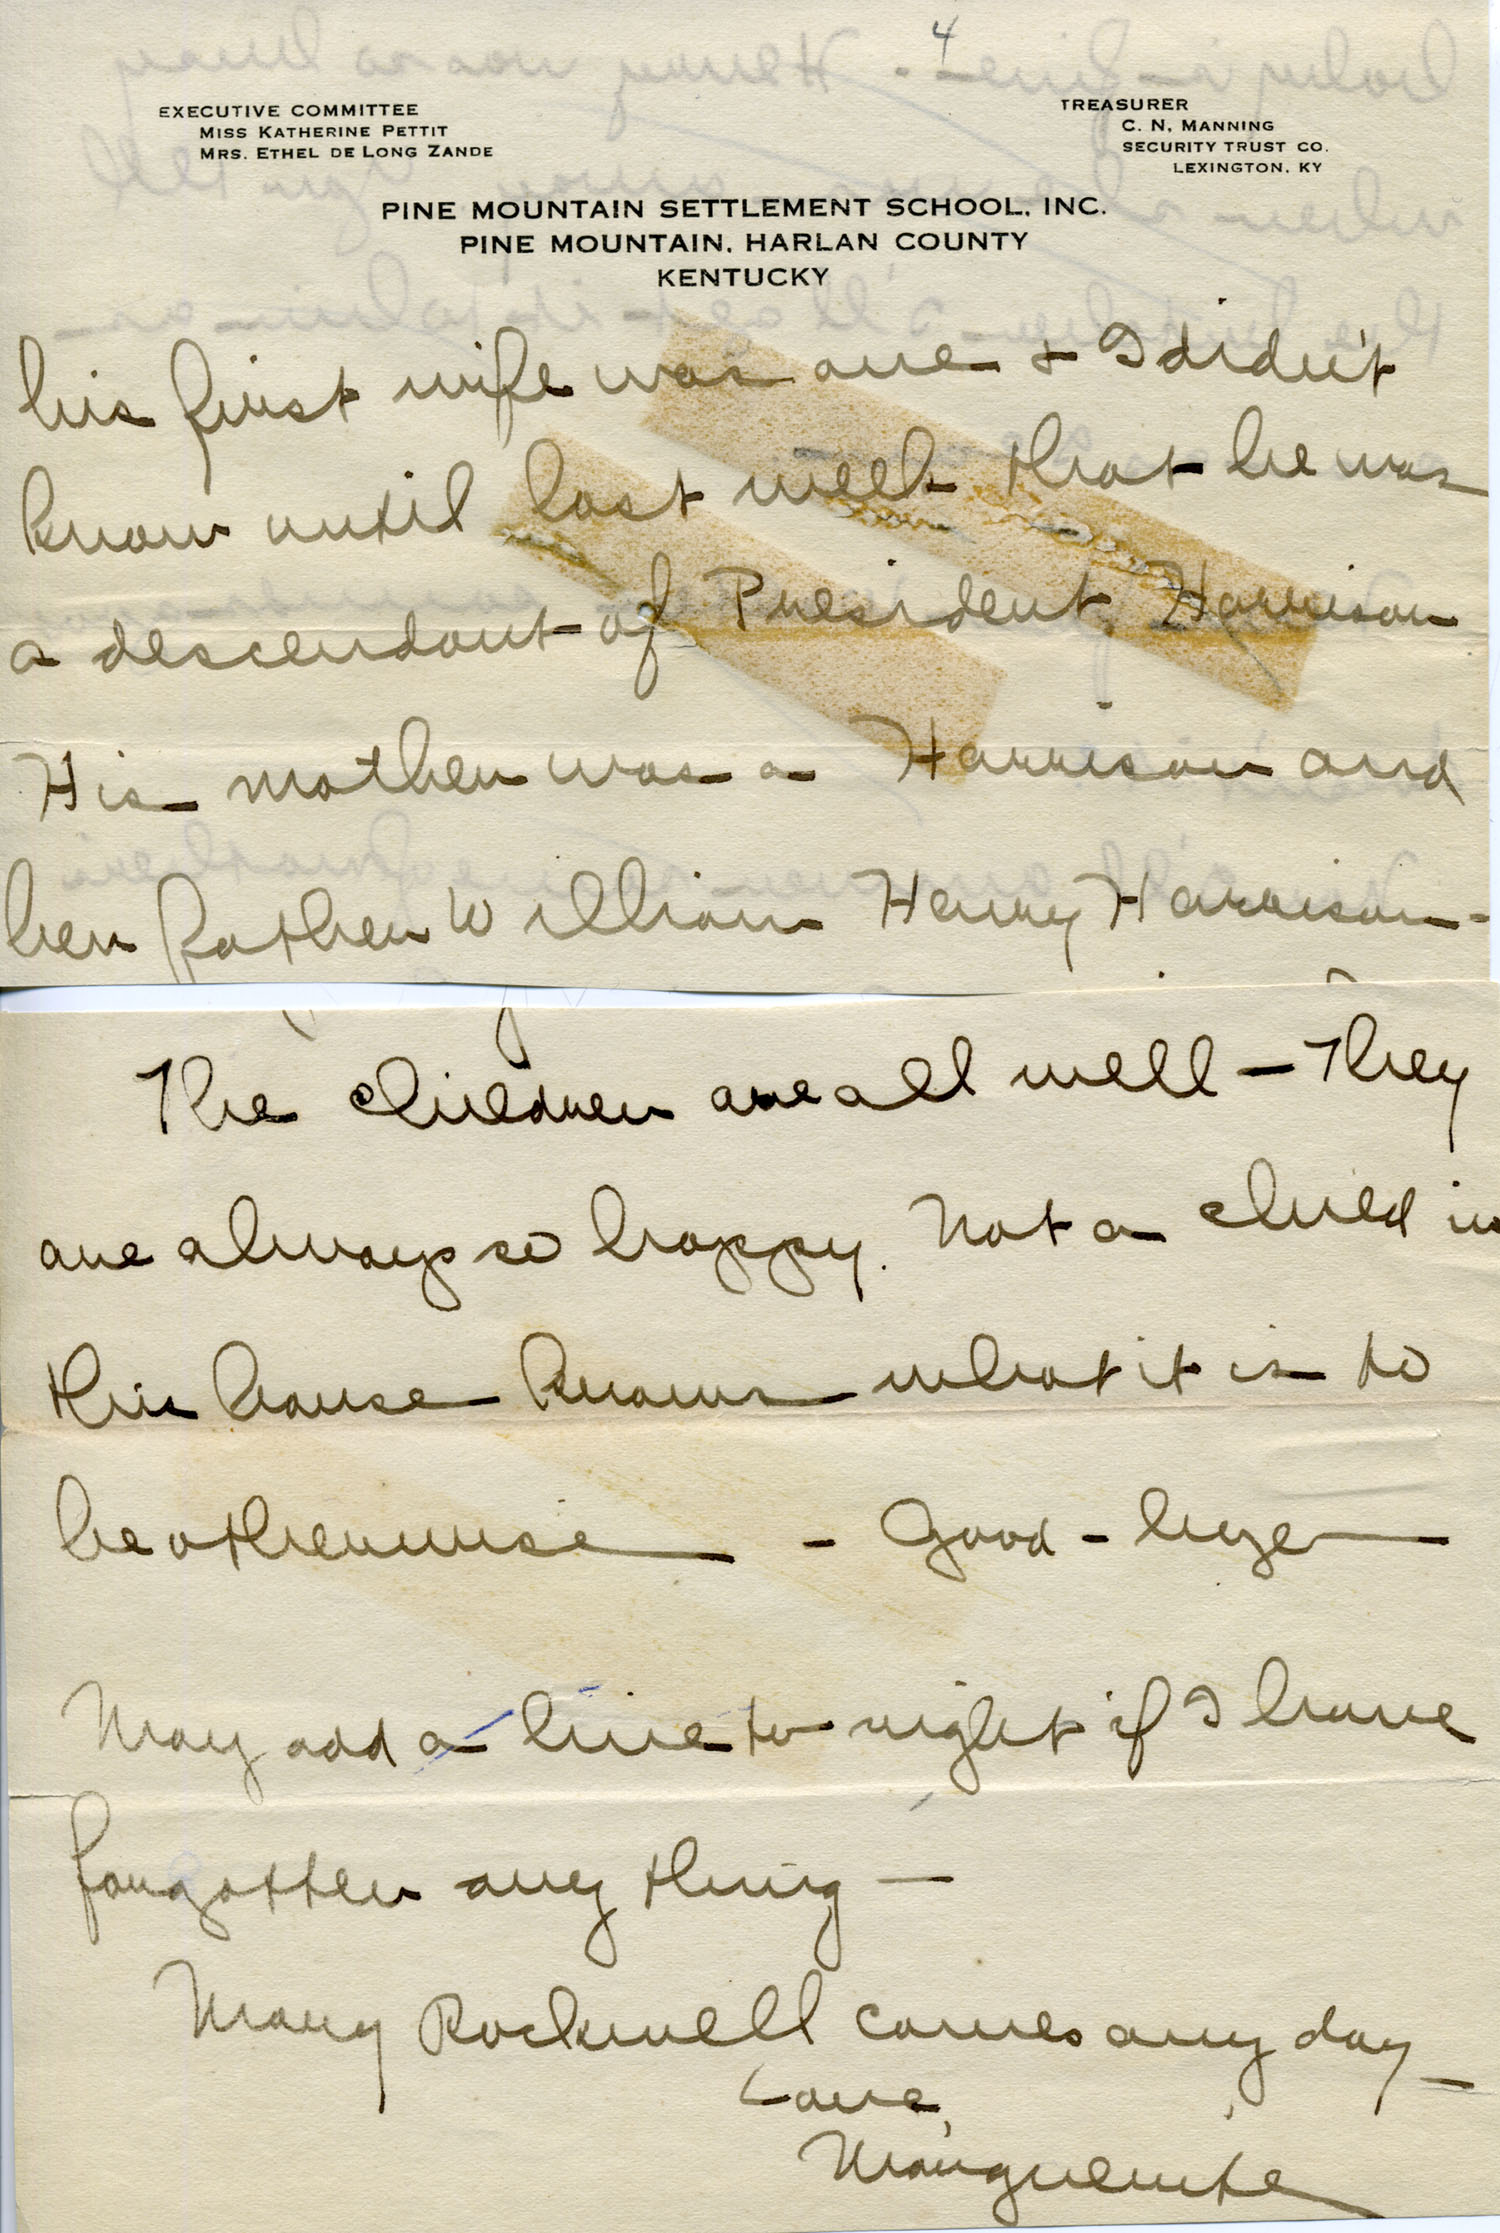 4
EXECUTIVE COMMITTEE
MISS KATHERINE PETTIT
MRS. ETHEL DE LONG ZANDE
TREASURER
C. N. MANNING
SECURITY TRUST CO.
LEXINGTON, KY
PINE MOUNTAIN SETTLEMENT SCHOOL, INC.
PINE MOUNTAIN, HARLAN COUNTY
KENTUCKY
his first wife was one & I didn't
know until last week that he was
a descendant of President Harrison
His mother was a Harrison and
her father William Henry Harrison-
The children are all well – They
are always so happy. Not a child in
this house knows what it is to
be otherwise – Good-bye
May add a line to night if I have
forgotten any thing –
Mary Rockwell comes any day –
Love,
Marguerite